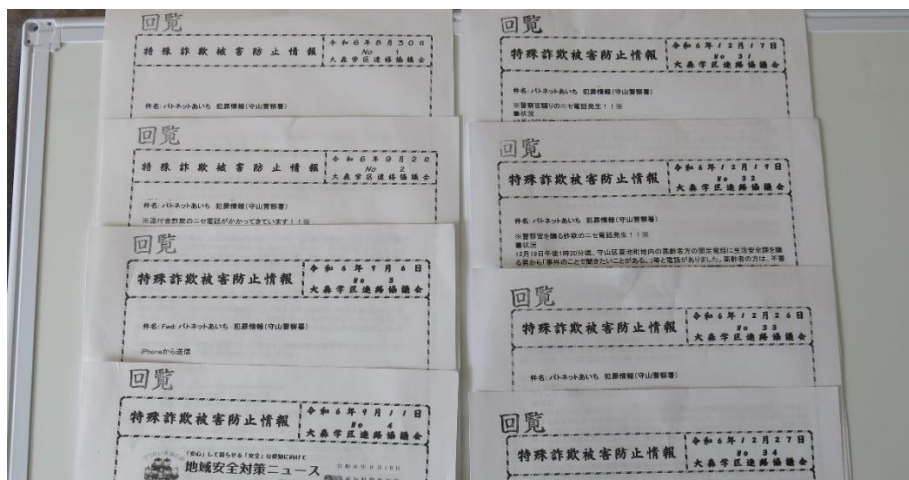 回覧
特殊詐欺被害防止情報
令和6年8月30日
No 1
大森学区連絡協議会
件名:パトネットあいち 犯罪情報(守山警察署)
回覧
特殊詐欺被害防止情報
令和6年9月2日
No 2
大森学区連絡協議会
件名:パトネットあいち 犯罪情報(守山警察署)
※還付金詐欺のニセ電話がかかってきています!!※
回覧
特殊詐欺被害防止情報
令和6年9月6日
No 3
大森学区連絡協議会
件名:Fwd:パトネットあいち 犯罪情報(守山警察署)
iPhoneから送信
回覧
特殊詐欺被害防止情報
令和6年9月11日
No 4
大森学区連絡協議会
「安心」して暮らせる「安全」な愛知に向けて
地域安全対策ニュース
回覧
特殊詐欺被害防止情報
令和6年12月17日
No 31
大森学区連絡協議会
件名:パトネットあいち 犯罪情報(守山警察署)
※警察官騙りのニセ電話発生!!※
■状況
回覧
特殊詐欺被害防止情報
令和6年12月19日
No 32
大森学区連絡協議会
件名:パトネットあいち 犯罪情報(守山警察署)
※警察官を騙る詐欺のニセ電話発生!!※
■状況
12月19日午後1時20分頃、守山区菱池町地内の高齢者方の固定電話に生活安全課を騙
る男から「事件のことで聞きたいことがある。」等と電話がありました。高齢者の方は、不審
回覧
特殊詐欺被害防止情報
令和6年12月26日
No 33
大森学区連絡協議会
件名:パトネットあいち 犯罪情報(守山警察署)
回覧
特殊詐欺被害防止情報
令和6年12月27日
No 34
大森学区連絡協議会